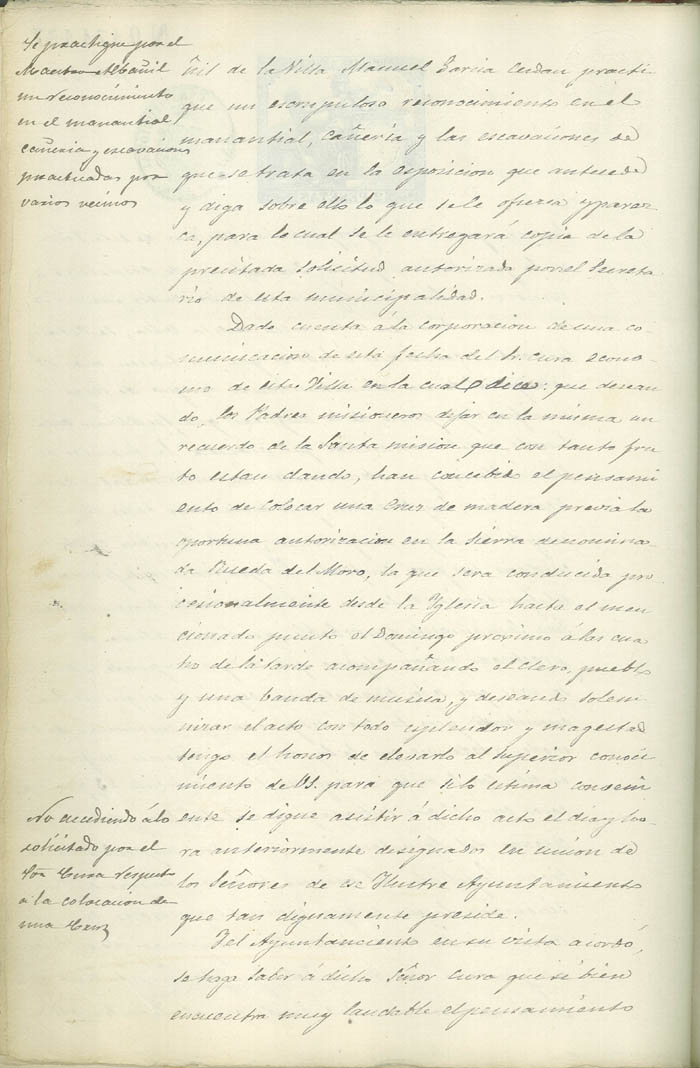 Se practique por el
Maestro Albañil
un reconocimiento
en el manantial,
cañeria y escavaciones
practicadas por
varios vecinos
ñil de la Villa Manuel Garcia Cerdan practi-
que un escrupuloso reconocimiento en el
manantial, cañeria y las escavaciones de
que se trata en la esposicion que antecede
y diga sobre ello lo que se le ofrezca y parez-
ca, para lo cual se le entregará copia de la
precitada solicitud autorizada por el Secreta
rio de esta municipalidad.
Dado cuenta á la corporacion de una co-
municacion de esta fecha del Sr. cura econo-
mo de esta Villa en la cual dice: que desean
do, los Padres misioneros dejar en la misma un
recuerdo de la Santa mision que con tanto fru
to estan dando, han concebido el pensami
ento de colocar una Cruz de madera previa la
oportuna autorizacion en la Sierra denomina-
da Rueda del Moro, la que sera conducida pro
cesionalmente desde la Yglesia hasta el men
cionado punto el Domingo proximo á las cua
tro de la tarde acompañando el clero, pueblo
y una banda de musica, y deseando solem
nizar el acto con todo esplendor y magestad
tengo el honor de elevarlo al superior conoci
miento de VS. para que si lo estima conveni
ente se digne asistir á dicho acto el dia y ho-
ra anteriormente designados en union de
los Señores de ese Ylustre Ayuntamiento
que tan dignamente preside.
Y el Ayuntamiento en su vista acordó,
se haga saber á dicho Señor Cura que si bien
encuentra muy laudable el pensamiento
No accediendo á lo
solicitado por el
Sor Cura respecto
á la colocacion de
una Cruz